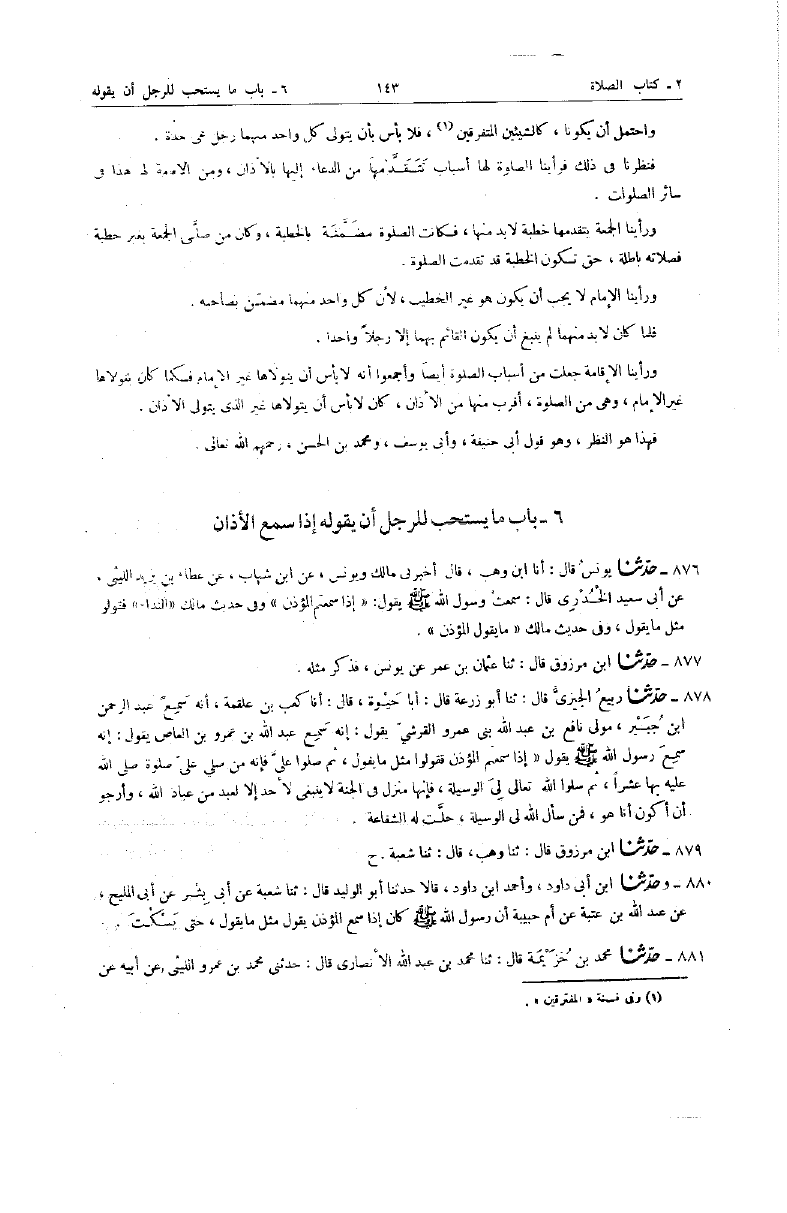 ٢ ـ كتاب الصلاة ١٤٣ ٦ ـ باب ما يستحب للرجل أن يقوله
واحتمل أن يكونا ، كالشيئين المتفرقين (١) ، فلا بأس بأن يتولى كل واحد منهما رجل على حدة .
فنظرنا فى ذلك فرأينا الصلوة لها أسباب تَتَقَدَّمها من الدعاء إليها بالأذان ، ومن الإقامة لها هذا فى
سائر الصلوات .
ورأينا الجمعة يتقدمها خطبة لابد منها ، فكانت الصلوة مضَمَّنَة بالخطبة ، وكان من صلَّى الجمعة بغير خطبة
فصلاته باطلة ، حتى تكون الخطبة قد تقدمت الصلوة .
ورأينا الإمام لا يجب أن يكون هو غير الخطيب ، لأن كل واحد منهما مضمن بصاحبه .
فلما كان لابد منهما لم ينبغ أن يكون القائم بهما إلا رجلاً واحدا .
ورأينا الإقامة جعلت من أسباب الصلوة أيضا وأجمعوا أنه لا بأس أن يتولاها غير الإمام فكما كان يتولاها
غير الإمام ، وهى من الصلوة ، أقرب منها من الأذان ، كان لا بأس أن يتولاها غير الذى يتولى الأذان .
فهذا هو النظر ، وهو قول أبى حنيفة ، وأبى يوسف ، ومحمد بن الحسن ، رحمهم الله تعالى .
٦ ـ باب ما يستحب للرجل أن يقوله إذا سمع الأذان
٨٧٦ ـ حدّثنا يونسُ قال : أنا ابن وهب ، قال أخبرنى مالك ويونس ، عن ابن شهاب ، عن عطاء بن يزيد الليثى ،
عن أبى سعيد الخُدْرى قال : سمعت رسول الله ﷺ يقول : « إذا سمعتم المؤذن » وفى حديث مالك «النداء» فقولو
مثل مايقول ، وفى حديث مالك « مايقول المؤذن » .
٨٧٧ ـ حدّثنا ابن مرزوق قال : ثنا عثمان بن عمر عن يونس ، فذكر مثله .
٨٧٨ ـ حدّثنا ربيعُ الجيزىَّ قال : ثنا أبو زرعة قال : أبا حَيْوة ، قال : أنا كعب بن علقمة ، أنه سَمِيعَ عبد الرحمن
ابن جُبَيْر ، مولى نافع بن عبد الله بنى عمرو القرشىّ يقول : إنه سَمِيع عبد الله بن عمرو بن العاص يقول : إنه
سمِيعَ رسول الله ﷺ يقول « إذا سمعتم المؤذن فقولوا مثل مايقول ، ثم صلوا علىَّ فإنه من صلى علىّ صلوة صلى الله
عليه بها عشراً ، ثم سلوا الله تعالى لِىَ الوسيلة ، فإنها منزل فى الجنة لاينبغى لأحد إلا لعبد من عباد الله ، وأرجو
أن أكون أنا هو ، فمن سأل الله لى الوسيلة ، حلَّت له الشفاعة .
٨٧٩ ـ حدّثنا ابن مرزوق قال : ثنا وهب، قال : ثنا شعبة . ح
٨٨٠ ـ وحدّثنا ابن أبى داود ، وأحمد ابن داود ، قالا حدثنا أبو الوليد قال : ثنا شعبة عن أبى بِشْر عن أبى المليح ،
عن عبد الله بن عتبة عن أم حبيبة أن رسول الله ﷺ كان إذا سمع المؤذن يقول مثل مايقول ، حتى يَسْكُتَ .
٨٨١ ـ حدّثنا محمد بن خُزَيْمَة قال : ثنا محمد بن عبد الله الأنصارى قال : حدثنى محمد بن عمرو الليثى ,عن أبيه عن
(١) وفى نسخة « المفترقين » .